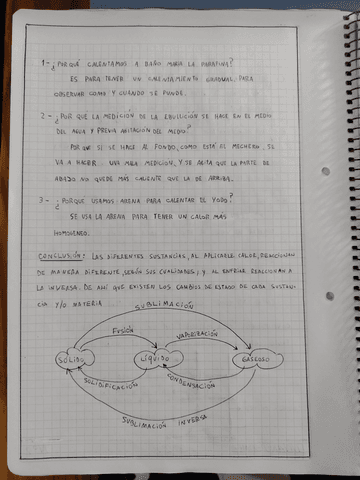 1-¿PORQUÉ CALENTAMOS A BAÑO MARIA LA PARAFINA?
ES PARA TENER UN CALENTAMIENTO GRADUAL, PARA
OBSERVAR COMO Y CUANDO SE FUNDE.
2-¿POR QUE LA MEDICIÓN DE LA EBULLICION SE HACE EN EL MEDIO
DEL AGUA Y PREVIA AGITACION DEL MEDIO?
POR QUE SI SE HACE AL FONDO, COMO ESTÁ EL MECHERO, SE
VA A HACER UNA MALA MEDICION, Y SE AGITA QUE LA PARTE DE
ABAJO NO QUEDE MÁS CALIENTE QUE LA DE ARRIBA.
3-¿PORQUE USAMOS ARENA PARA CALENTAR EL YODO?
SE USA LA ARENA PARA TENER UN CALOR MÁS
HOMOGENEO.
CONCLUSIÓN: LAS DIFERENTES SUSTANCIAS, AL APLICARLE CALOR, REACCIONAN
DE MANERA DIFERENTE, SEGÚN SUS CUALIDADES; Y AL ENFRIAR REACCIONAN A
LA INVERSA. DE AHÍ QUE EXISTEN LOS CAMBIOS DE ESTADO DE CADA SUSTAN
CIA Y/O MATERIA
SUBLIMACIÓN
FUSIÓN
VAPORIZACIÓN
SÓLIDO
LÍQUIDO
GASEOSO
SOLIDIFICACIÓN
CONDENSACIÓN
SUBLIMACIÓN INVERSA